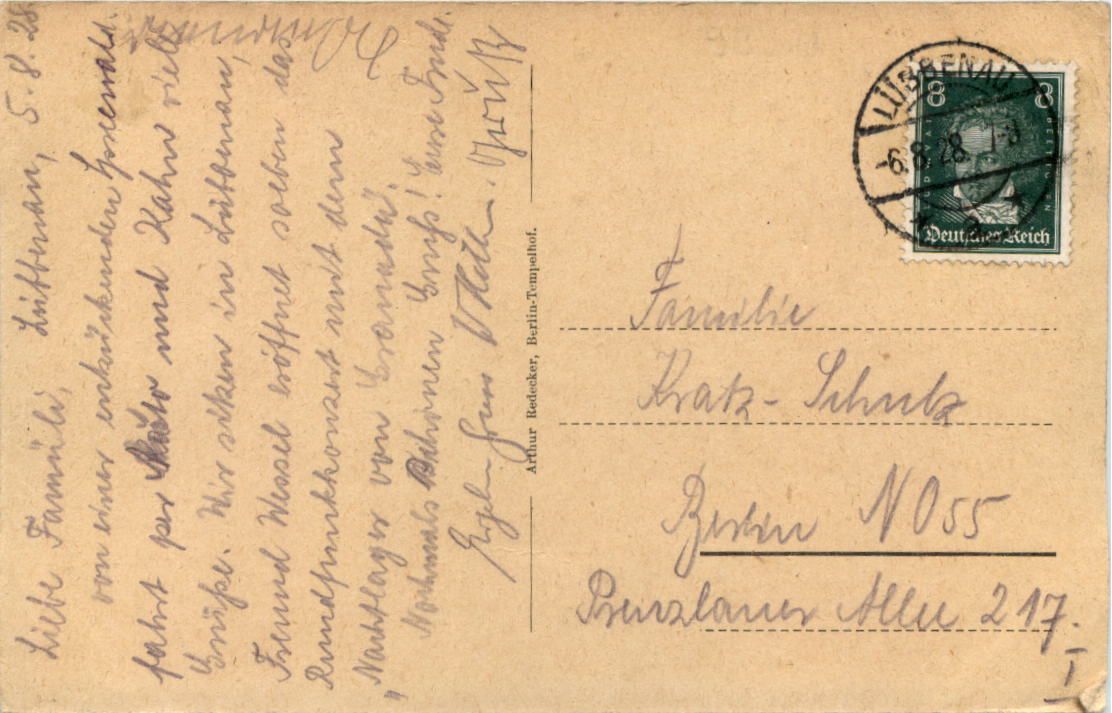 Lübbenau, 5.8.28.
Liebe Familie,
von einer entzückenden Spreewald-
fahrt per Auto und Kahn viele
Grüße. Wir sitzen in Lübbenau,
Freund Wessel eröffnet soeben das
Rundfunkkonzert mit dem
„Nachtlager von Granada“.
Nochmals Ihnen Gruß!
Gruß
Arthur Redecker, Berlin-Tempelhof.
LÜBBENAU
6.8.28. 7-8
8 8
Deutsches Reich
Familie
Kratz-Schulz
Berlin NO55
Prenzlauer Allee 217.
I